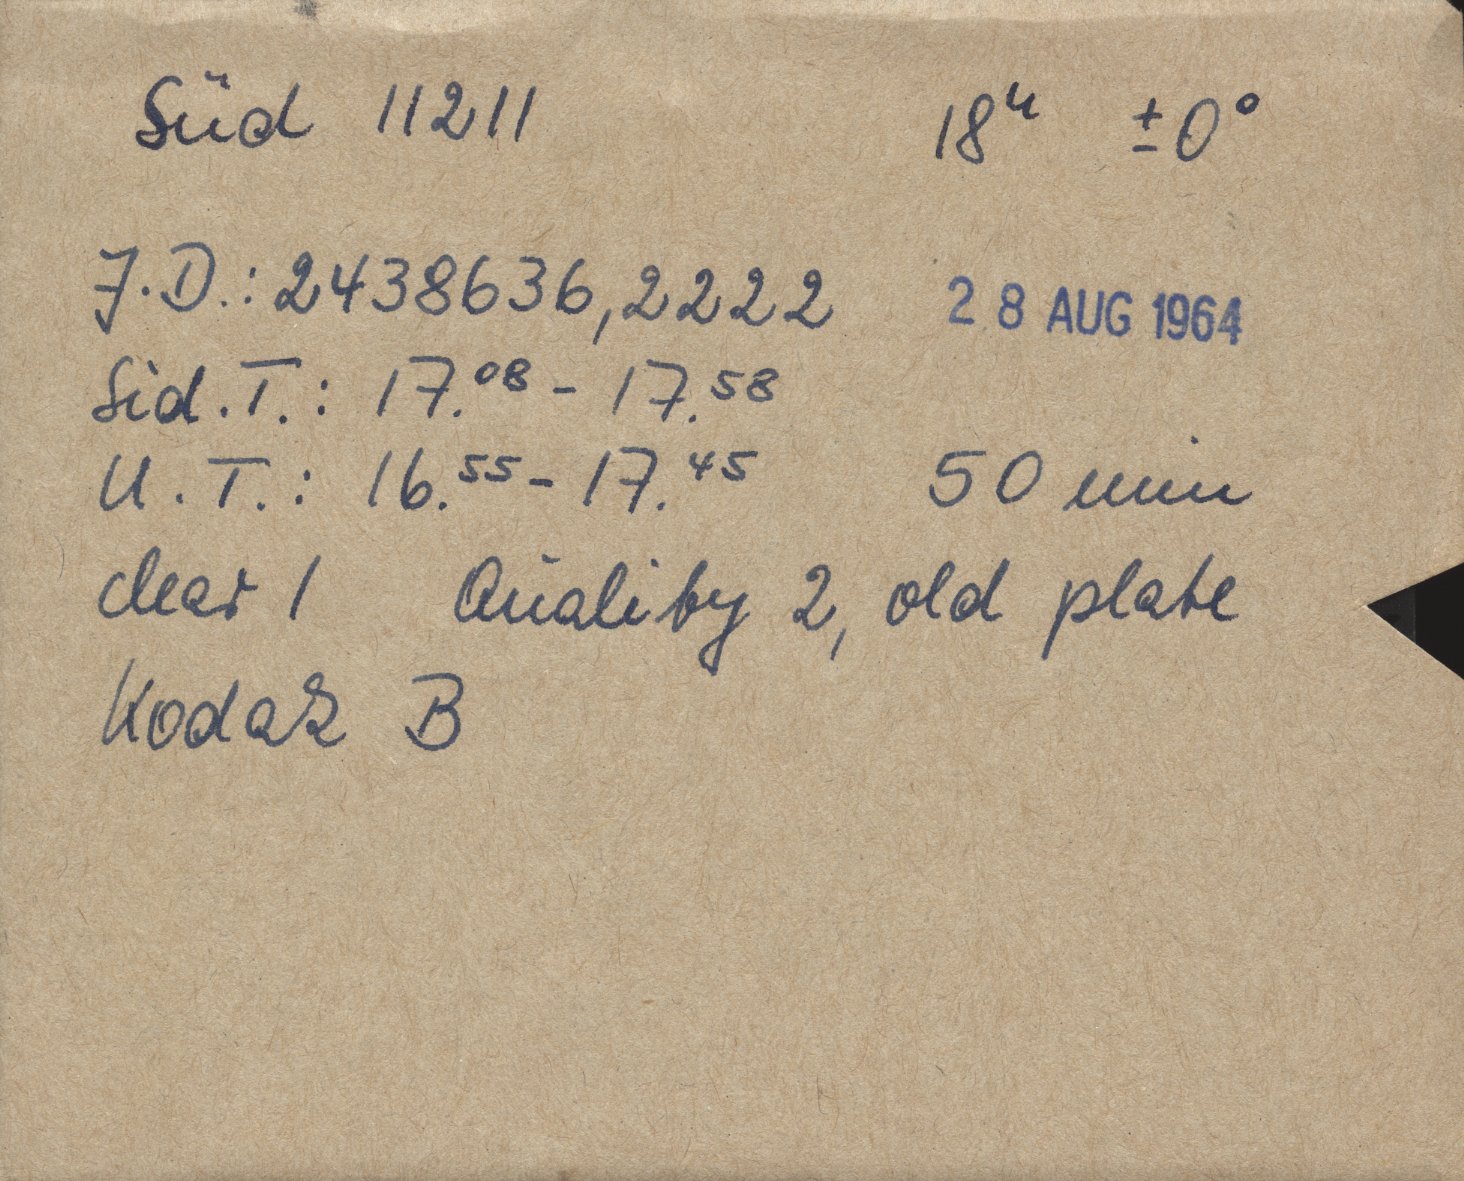 Süd 11211 18ʰ ±0°
J.D.: 2438636,2222 28 AUG 1964
Sid.T.: 17.⁰⁸ - 17.⁵⁸
U.T.: 16.⁵⁵ - 17.⁴⁵ 50 min
clear 1 Quality 2, old plate
Kodak B